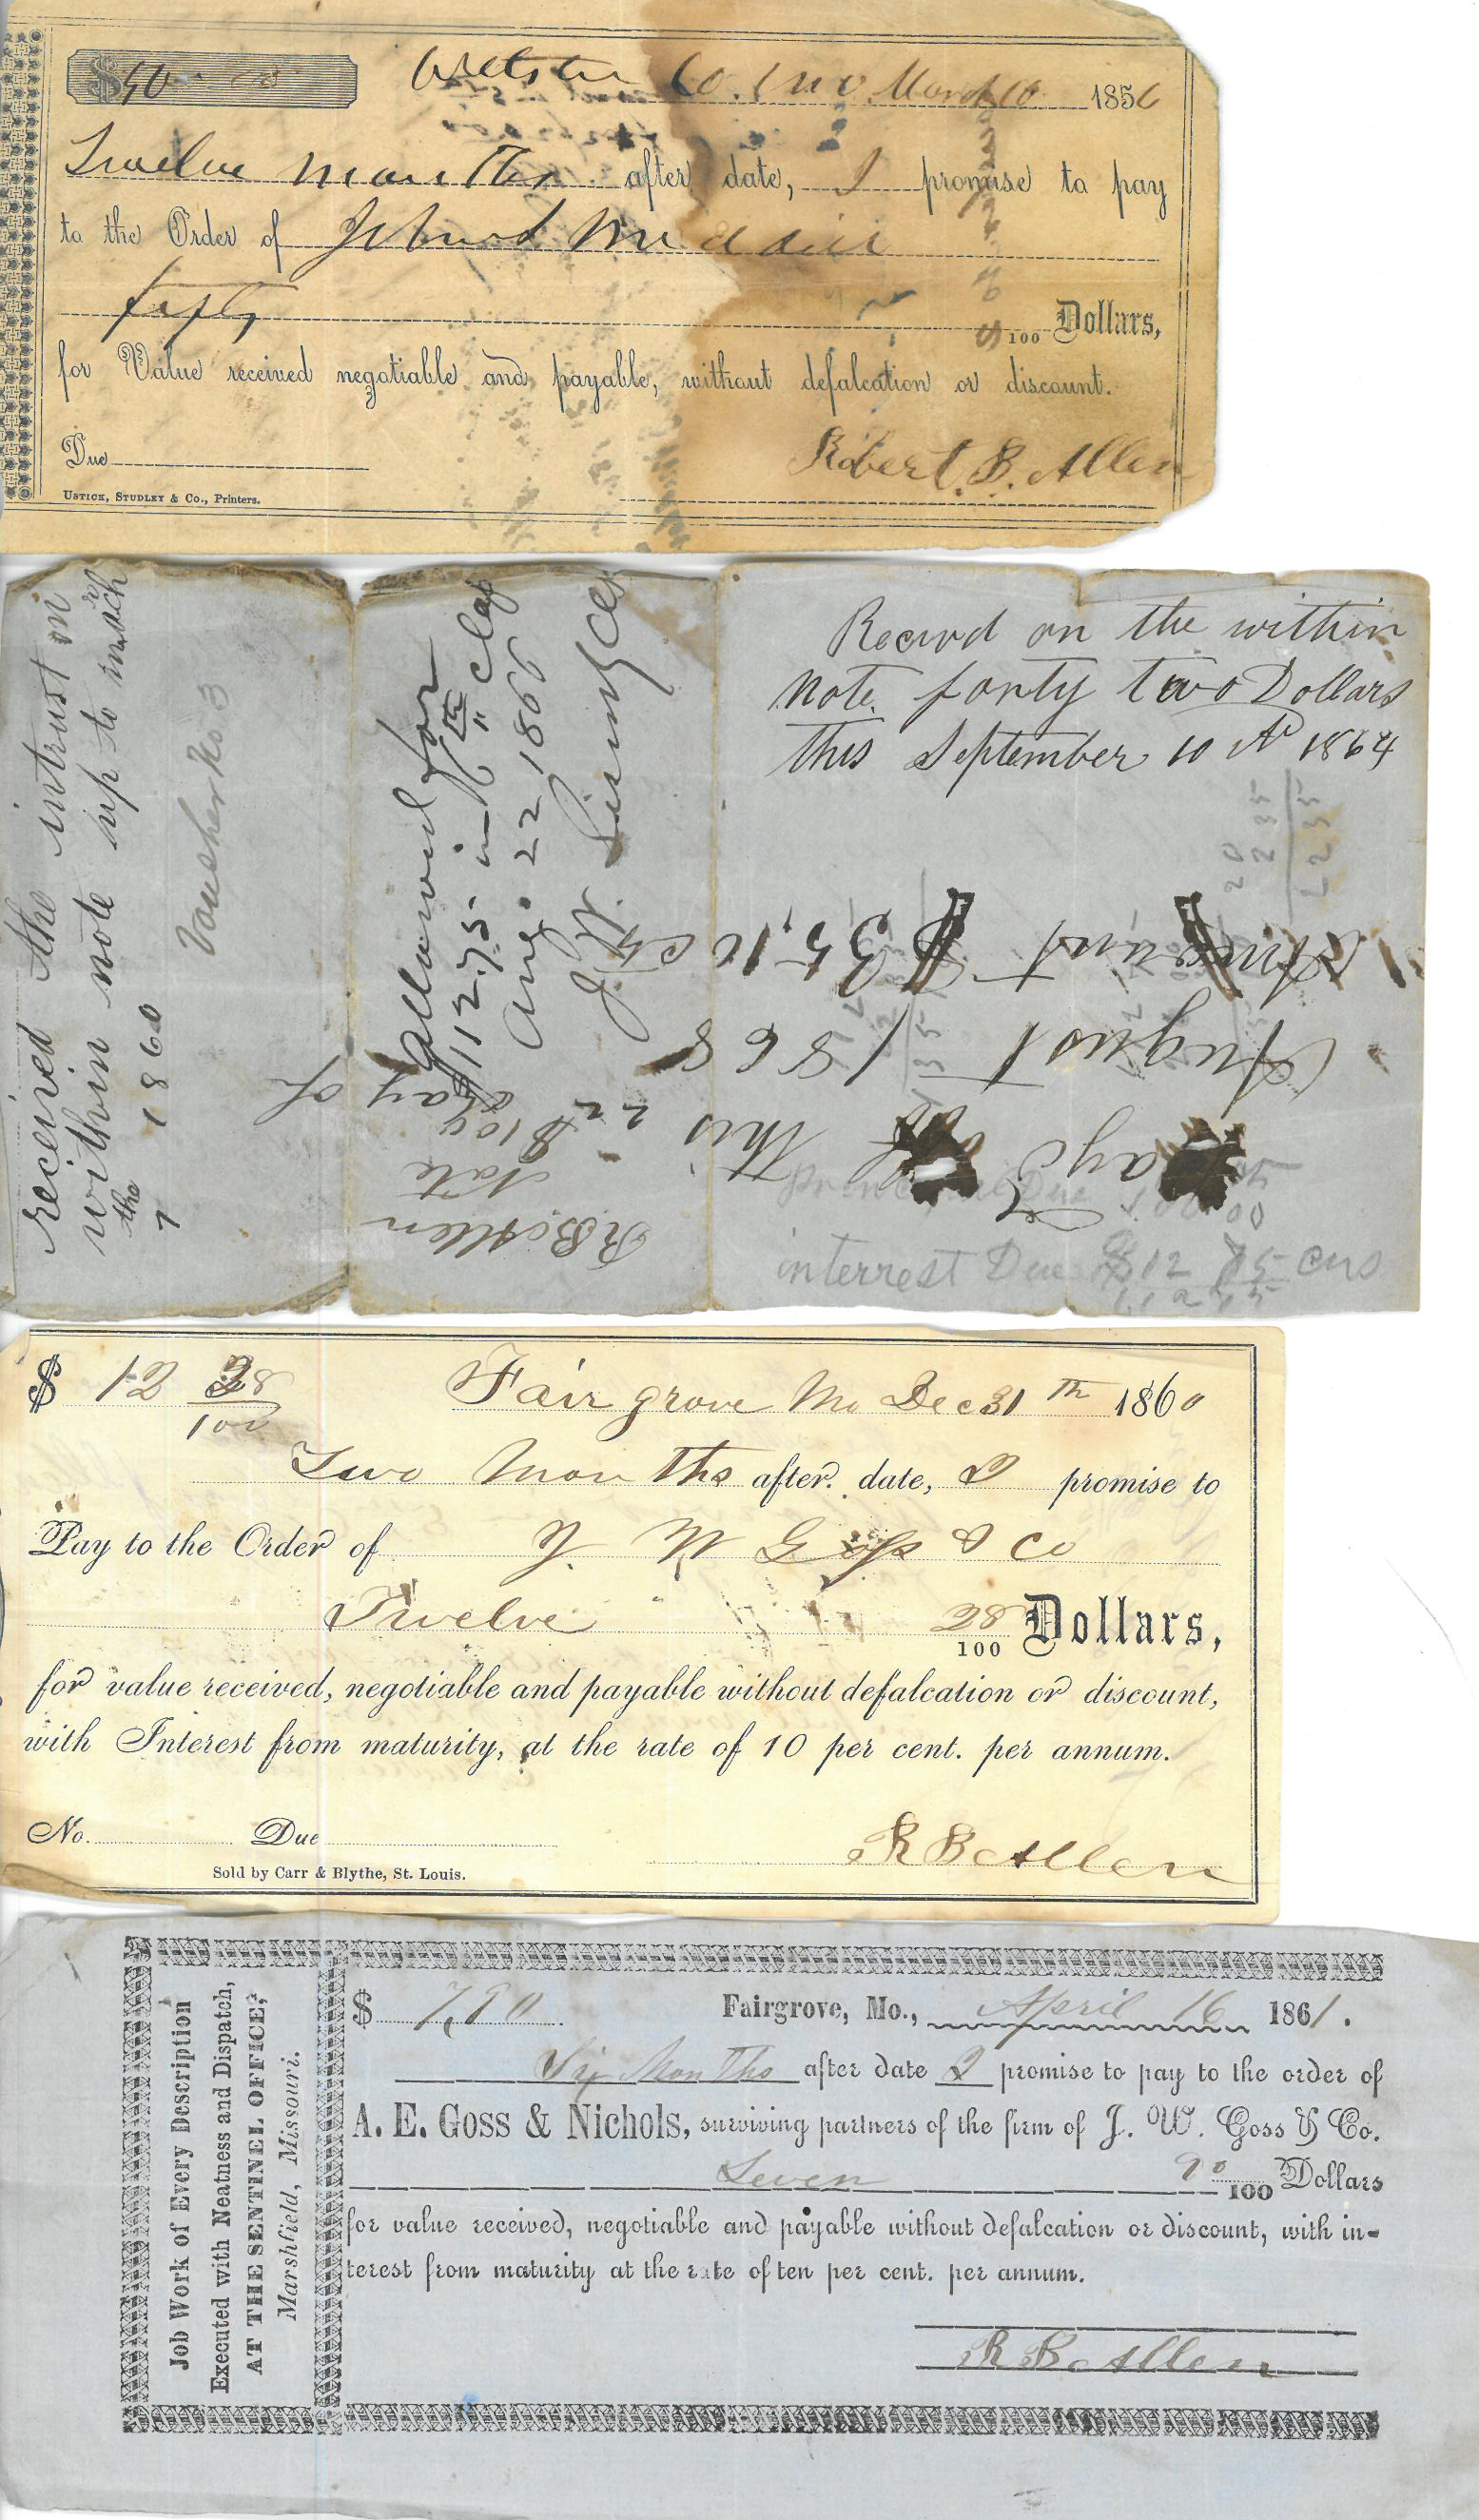 $50
Webster Co. Mo. March 10 1856
Twelve months after date, I promise to pay
to the Order of
fifty 100 Dollars,
for Value received negotiable and payable, without defalcation or discount.
Due
Robert. B. Allen
Ustick, Studley & Co., Printers.
received the intrust on
within note up to march
the 7 1860
Voucher No 3
Allowed for
$112.75 in 6th Clap
Aug. 22 1866
R B Allen
Note
$100
Recivd on the within
note forty two Dollars
this September 10 AD 1864
20
235
Days of this 22 day of
August 1868
Amount $35,10 cts
interrest Due $12 75 cns
$ 12 28/100
Fair grove Mo Dec 31th 1860
Two Months after date, I promise to
Pay to the Order of J. W Goss & Co
Twelve 28/100 Dollars,
for value received, negotiable and payable without defalcation or discount,
with Interest from maturity, at the rate of 10 per cent. per annum.
No. Due
R B Allen
Sold by Carr & Blythe, St. Louis.
Job Work of Every Description
Executed with Neatness and Dispatch,
AT THE SENTINEL OFFICE,
Marshfield, Missouri.
$ 7,90 Fairgrove, Mo., April 16 1861.
Six Months after date I promise to pay to the order of
A. E. Goss & Nichols, surviving partners of the firm of J. W. Goss & Co.
Seven 90/100 Dollars
for value received, negotiable and payable without defalcation or discount, with in-
terest from maturity at the rate of ten per cent. per annum.
R B Allen